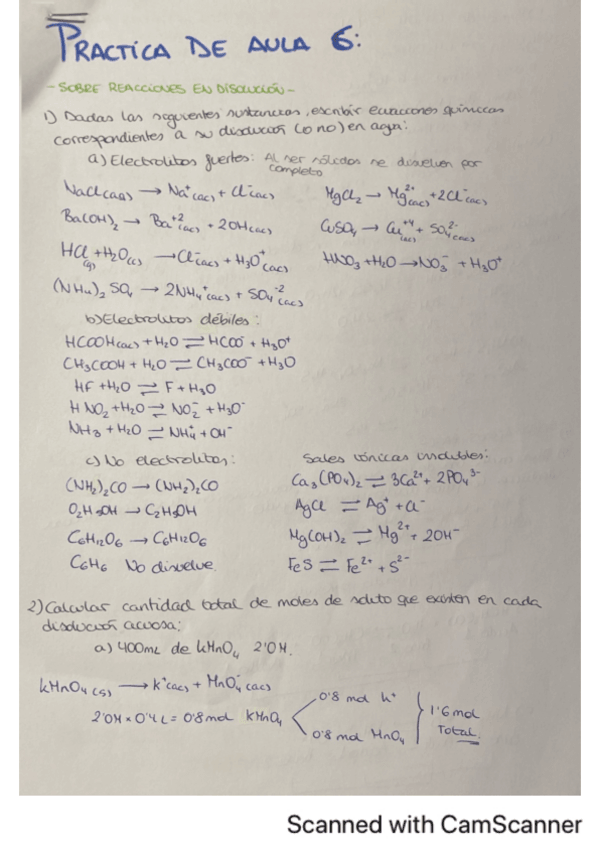 PRACTICA DE AULA 6:
- SOBRE REACCIONES EN DISOLUCIÓN -
1) Dadas las siguientes sustancias, escribir ecuaciones químicas
correspondientes a su disolución (o no) en agua:
a) Electrolitos fuertes: Al ser sólidos se disuelven por
completo
NaCl(aq) → Na⁺(ac) + Cl⁻(ac)
MgCl₂ → Mg²⁺(ac) + 2Cl⁻(ac)
Ba(OH)₂ → Ba⁺²(ac) + 2OH(ac)
CuSO₄ → Cu⁺⁴(ac) + SO₄²⁻(ac)
HCl(g) + H₂O(l) → Cl⁻(ac) + H₃O⁺(ac)
HNO₃ + H₂O → NO₃⁻ + H₃O⁺
(NH₄)₂SO₄ → 2NH₄⁺(ac) + SO₄⁻²(ac)
b) Electrolitos débiles:
HCOOH(ac) + H₂O ⇌ HCOO⁻ + H₃O⁺
CH₃COOH + H₂O ⇌ CH₃COO⁻ + H₃O
HF + H₂O ⇌ F + H₃O
HNO₂ + H₂O ⇌ NO₂⁻ + H₃O⁻
NH₃ + H₂O ⇌ NH₄⁺ + OH⁻
c) No electrolitos:
Sales iónicas insolubles:
(NH₂)₂CO → (NH₂)₂CO
Ca₃(PO₄)₂ ⇌ 3Ca²⁺ + 2PO₄³⁻
C₂H₅OH → C₂H₅OH
AgCl ⇌ Ag⁺ + Cl⁻
C₆H₁₂O₆ → C₆H₁₂O₆
Mg(OH)₂ ⇌ Mg²⁺ + 2OH⁻
C₆H₆ No disuelve
FeS ⇌ Fe²⁺ + S²⁻
2) Calcular cantidad total de moles de soluto que existen en cada
disolución acuosa:
a) 400mL de KMnO₄ 2'0M.
KMnO₄(s) → K⁺(ac) + MnO₄⁻(ac)
0'8 mol K⁺
2'0M × 0'4L = 0'8 mol KMnO₄
1'6 mol
Total.
0'8 mol MnO₄
Scanned with CamScanner